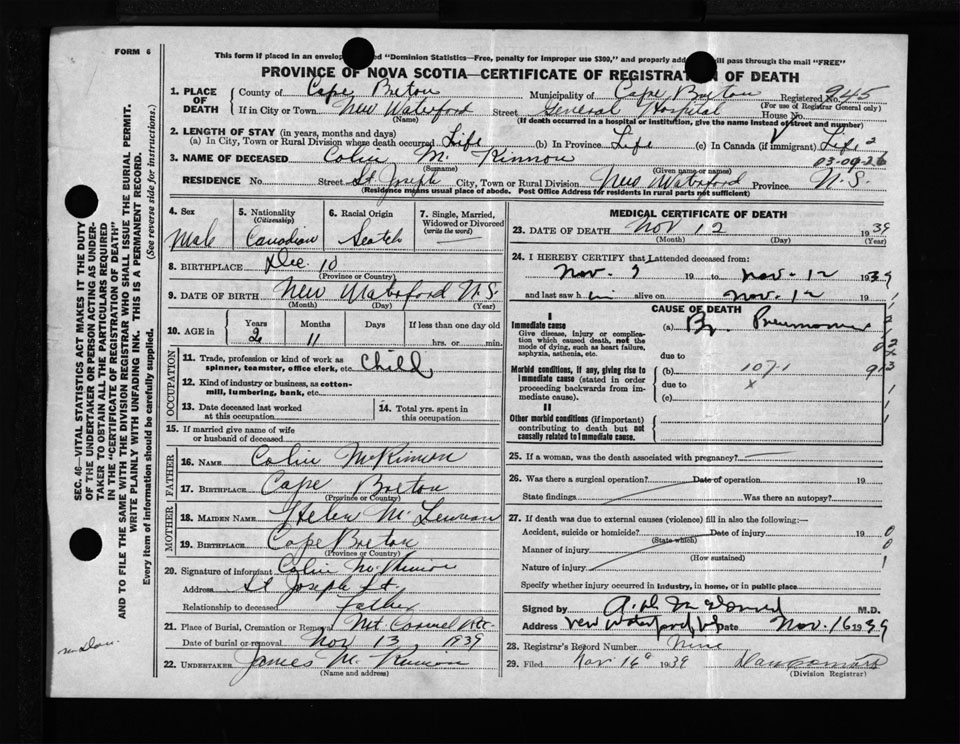 FORM 6
This form if placed in an envelop ed "Dominion Statistics—Free, penalty for improper use $300," and properly add ill pass through the mail "FREE"
PROVINCE OF NOVA SCOTIA—CERTIFICATE OF REGISTRATION OF DEATH
1. PLACE OF DEATH
County of Cape Breton Municipality of Cape Breton Registered No. 945
(For use of Registrar General only)
If in City or Town New Waterford Street General Hospital House No.
(Name) (If death occurred in a hospital or institution, give the name instead of street and number)
2. LENGTH OF STAY (in years, months and days)
(a) In City, Town or Rural Division where death occurred Life (b) In Province Life (c) In Canada (if immigrant) Life 2
3. NAME OF DECEASED Colin McKinnon 03-09-26
(Surname) (Given name or names)
RESIDENCE No. Street St. Joseph City, Town or Rural Division New Waterford Province N.S.
(Residence means usual place of abode. Post Office Address for residents in rural parts not sufficient)
4. Sex Male
5. Nationality (Citizenship) Canadian
6. Racial Origin Scotch
7. Single, Married, Widowed or Divorced (write the word) —
8. BIRTHPLACE Dec. 10
(Province or Country)
9. DATE OF BIRTH New Waterford N.S.
(Month) (Day) (Year)
10. AGE in Years 2 Months 11 Days If less than one day old hrs. or min.
OCCUPATION
11. Trade, profession or kind of work as spinner, teamster, office clerk, etc. Child
12. Kind of industry or business, as cotton-mill, lumbering, bank, etc.
13. Date deceased last worked at this occupation
14. Total yrs. spent in this occupation
15. If married give name of wife or husband of deceased
FATHER
16. NAME Colin McKinnon
17. BIRTHPLACE Cape Breton
(Province or Country)
MOTHER
18. MAIDEN NAME Helen McLennan
19. BIRTHPLACE Cape Breton
(Province or Country)
20. Signature of informant Colin McKinnon
Address St Joseph St.
Relationship to deceased Father
21. Place of Burial, Cremation or Removal Mt Carmel
Date of burial or removal Nov 13 1939
22. UNDERTAKER James McKinnon
(Name and address)
MEDICAL CERTIFICATE OF DEATH
23. DATE OF DEATH Nov 12 1939
(Month) (Day) (Year)
24. I HEREBY CERTIFY that I attended deceased from:
Nov. 9 19 to Nov. 12 1939
and last saw him alive on Nov. 12 19
CAUSE OF DEATH
I
Immediate cause
Give disease, injury or complication which caused death, not the mode of dying, such as heart failure, asphyxia, asthenia, etc.
(a) Br. Pneumonia
due to
Morbid conditions, if any, giving rise to immediate cause (stated in order proceeding backwards from immediate cause).
(b) 107-1
due to x
(c)
II
Other morbid conditions (if important) contributing to death but not causally related to immediate cause.
25. If a woman, was the death associated with pregnancy?
26. Was there a surgical operation? Date of operation 19
State findings Was there an autopsy?
27. If death was due to external causes (violence) fill in also the following:—
Accident, suicide or homicide? Date of injury 19
(State which)
Manner of injury
(How sustained)
Nature of injury
Specify whether injury occurred in industry, in home, or in public place
Signed by M.D.
Address New Waterford Date Nov. 16 1939
28. Registrar's Record Number Nine
29. Filed Nov 16 1939
(Division Registrar)
SEC. 46—VITAL STATISTICS ACT MAKES IT THE DUTY
OF THE UNDERTAKER OR PERSON ACTING AS UNDER-
TAKER TO OBTAIN ALL THE PARTICULARS REQUIRED
IN THE "CERTIFICATE OF REGISTRATION OF DEATH"
AND TO FILE THE SAME WITH THE DIVISION REGISTRAR WHO SHALL ISSUE THE BURIAL PERMIT.
WRITE PLAINLY WITH UNFADING INK. THIS IS A PERMANENT RECORD.
Every item of information should be carefully supplied. (See reverse side for instructions.)